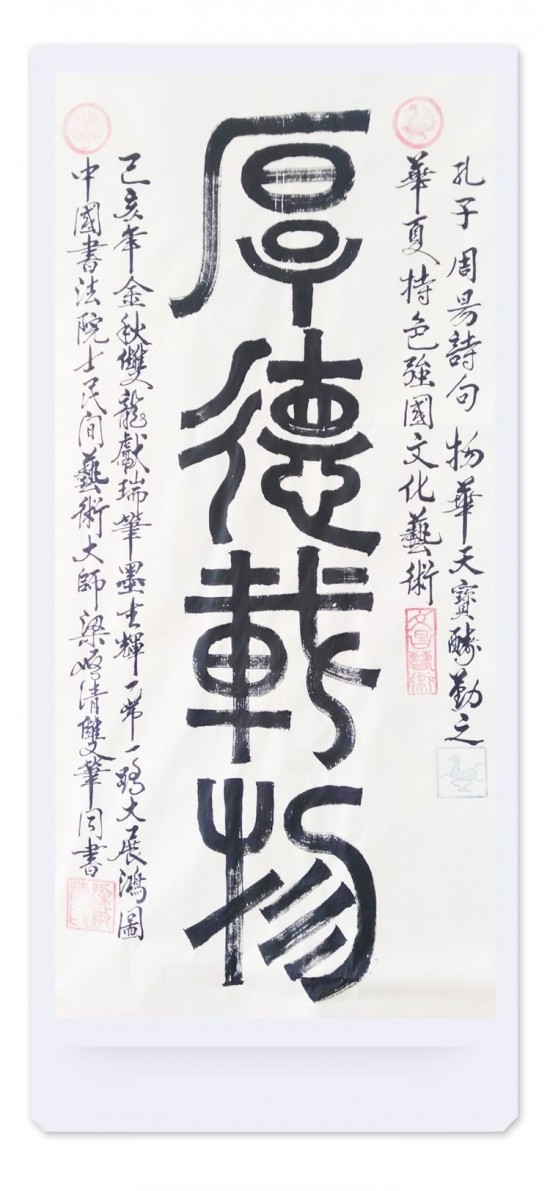 孔子周易詩句物華天寶酬勤之
華夏特色強國文化藝術
厚德載物
己亥年金秋雙龍獻瑞筆墨生輝一帶一路大展鴻圖
中國書法院士民間藝術大師梁啓清雙筆同書